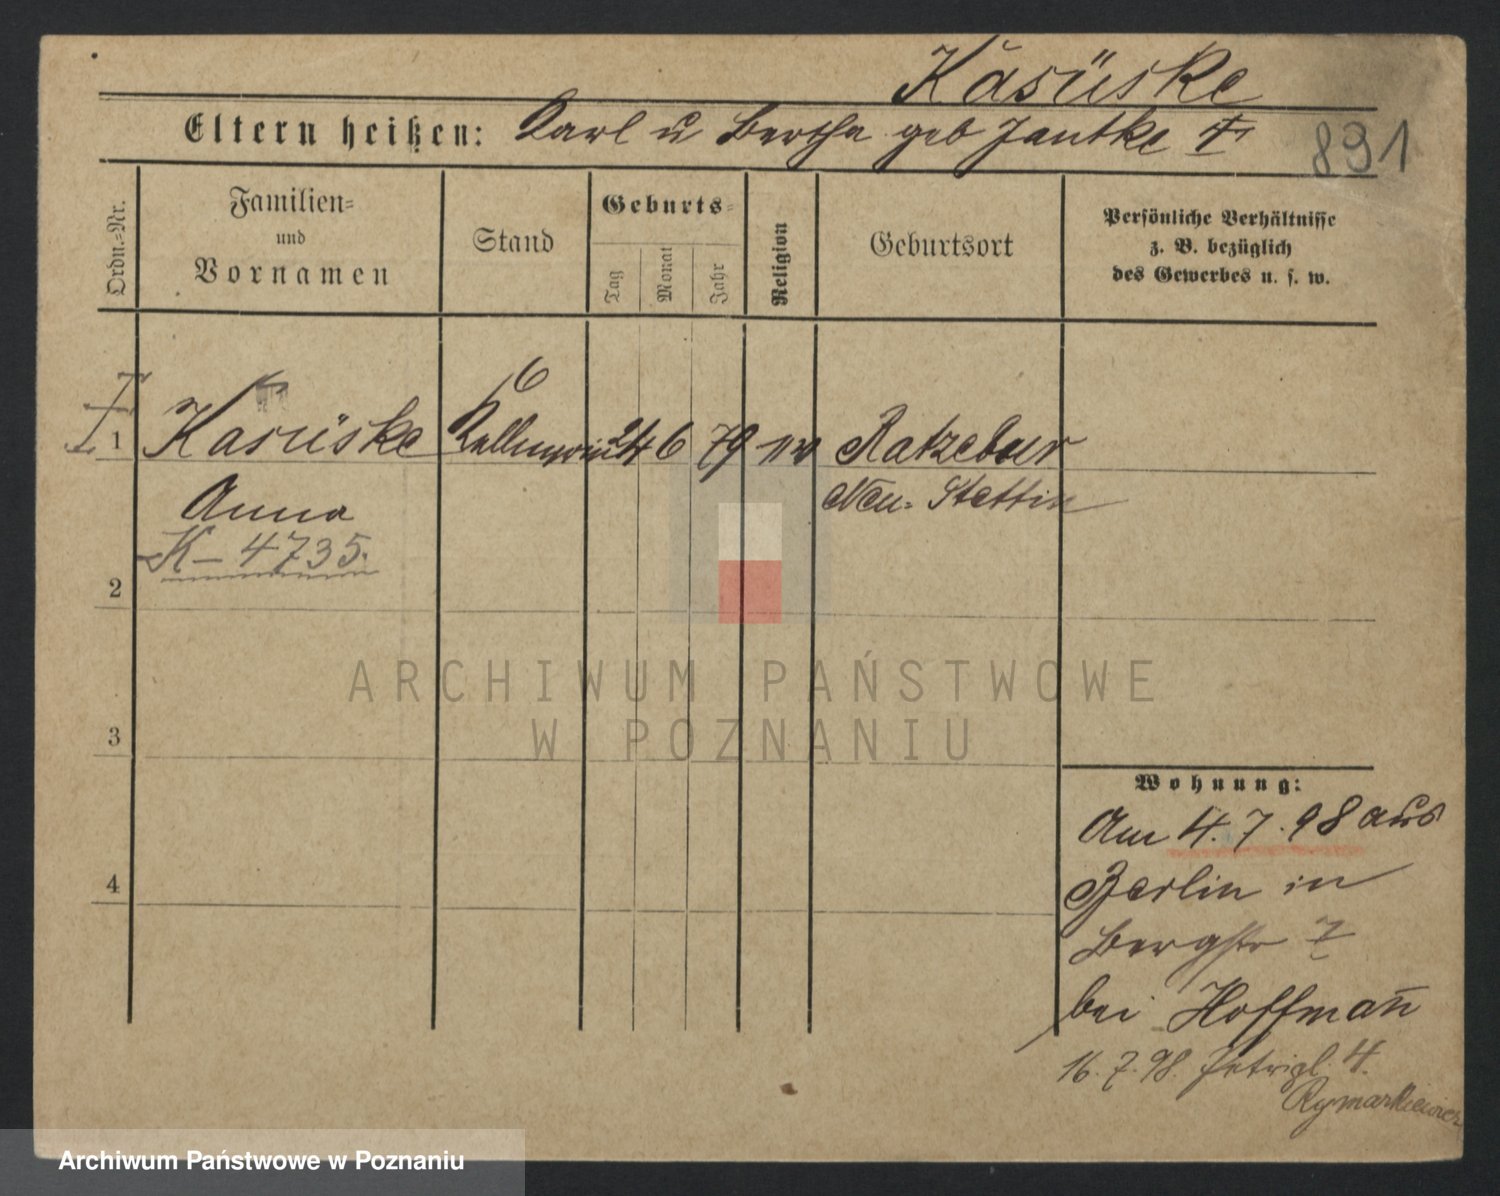 Kasüske
Eltern heißen: Karl u Bertha geb Jantke
891
Ordn.-Nr.
Familien-
und
Vornamen
Stand
Geburts-
Tag
Monat
Jahr
Religion
Geburtsort
Persönliche Verhältnisse
z. B. bezüglich
des Gewerbes u. s. w.
6
1 Kasüske Kellnerin 24 6 79 Ratzebur
Anna Neu-Stettin
K-4735.
2
3
4
ARCHIWUM PAŃSTWOWE
W POZNANIU
Wohnung:
Am 4.7.98 aus
Berlin in
Bergstr 7
bei Hoffmañ
16.7.98. Petripl. 4.
Rymarkiewicz
Archiwum Państwowe w Poznaniu